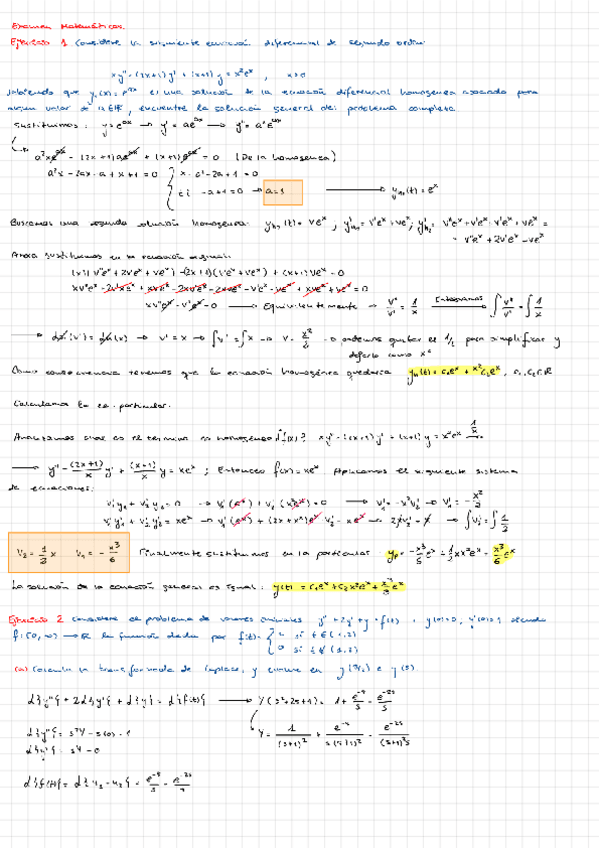 Examen Matemáticas.
Ejercicio 1 Considere la siguiente ecuación diferencial de segundo orden:
xy''-(2x+1)y'+(x+1)y = x²eˣ , x>0
sabiendo que y₁(x) = eᵃˣ es una solución de la ecuación diferencial homogénea asociada para
algún valor de a∈ℝ, encuentre la solución general del problema completo.
Sustituimos: y=eᵃˣ → y'=aeᵃˣ → y''=a²eᵃˣ
a²xeᵃˣ - (2x+1)aeᵃˣ + (x+1)eᵃˣ = 0 (De la homogénea)
a²x-2ax-a+x+1=0 { x·a²-2a+1=0
-a+1=0 → a=1 → y_H₁(t)=eˣ
Buscamos una segunda solución homogénea: y_H₂(t)=veˣ; y'_H₂=v'eˣ+veˣ; y''_H₂= v''eˣ+v'eˣ+v'eˣ+veˣ =
= v''eˣ+2v'eˣ+veˣ
Ahora sustituimos en la ecuación original:
(x)(v''eˣ+2v'eˣ+veˣ)-(2x+1)(v'eˣ+veˣ)+(x+1)veˣ=0
xv''eˣ+2v'xeˣ+xveˣ-2xv'eˣ-2xveˣ-v'eˣ-veˣ+xveˣ+veˣ=0
xv''eˣ-v'eˣ=0 → Equivalentemente → v''/v' = 1/x Integramos ∫v''/v' = ∫1/x
→ ln(v')=ln(x) → v'=x → ∫v'=∫x → v= x²/2 → podemos quitar el 1/2 para simplificar y
dejarlo como x²
Como consecuencia tenemos que la ecuación homogénea quedaría y_H(t)=c₁eˣ+x²c₂eˣ, c₁,c₂∈ℝ
Calculamos la ec. particular.
Analizamos cual es el término no homogéneo ¿f(x)? xy''-(2x+1)y'+(x+1)y=x²eˣ 1/x
→ y''-(2x+1)/x y'+(x+1)/x y=xeˣ; Entonces f(x)=xeˣ Aplicamos el siguiente sistema
de ecuaciones:
v₁'y₁+v₂'y₂=0 → v₁'(eˣ)+v₂'(x²eˣ)=0 → v₁'=-x²v₂' → v₁'=-x²/2
v₁'y₁'+v₂'y₂'=xeˣ → v₁'(eˣ)+(2x+x²)eˣv₂'=xeˣ → 2xv₂'=x → ∫v₂'=∫1/2
v₂=1/2 x v₁=-x³/6 Finalmente sustituimos en la particular: y_p=-x³/6 eˣ+1/2 x x²eˣ= x³/3 eˣ
La solución de la ecuación general es igual: y(t)=c₁eˣ+c₂x²eˣ+x³/3 eˣ
Ejercicio 2 Considere el problema de valores iniciales y''+2y'+y=f(t) , y(0)=0, y'(0)=1 siendo
f:[0,∞) → ℝ la función dada por f(t)= { 1 si t∈[1,2)
0 si t∉[1,2)
(a) Calcula la transformada de Laplace, y evalúe en y(3/2) e y(3).
ℒ{y''}+2ℒ{y'}+ℒ{y}=ℒ{f(t)} → Y(s²+2s+1)= 1+ e⁻ˢ/s - e⁻²ˢ/s
ℒ{y''}=s²Y-s(0)-1 Y= 1/(s+1)² + e⁻ˢ/s(s+1)² - e⁻²ˢ/(s+1)²s
ℒ{y'}=sY-0
ℒ{f(t)}=ℒ{u₁-u₂}= e⁻ˢ/s - e⁻²ˢ/s